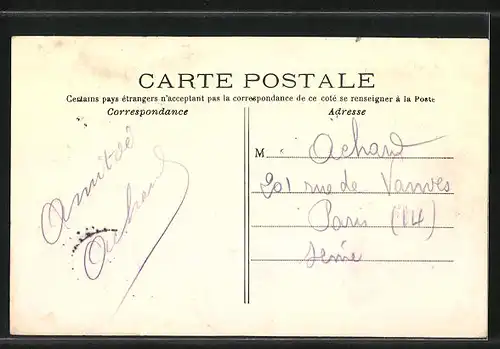 CARTE POSTALE
Certains pays étrangers n'acceptant pas la correspondance de ce coté se renseigner à la Poste
Correspondance
Adresse
Amitié
Achard
M. Achard
201 rue de Vanves
Paris (14)
Seine